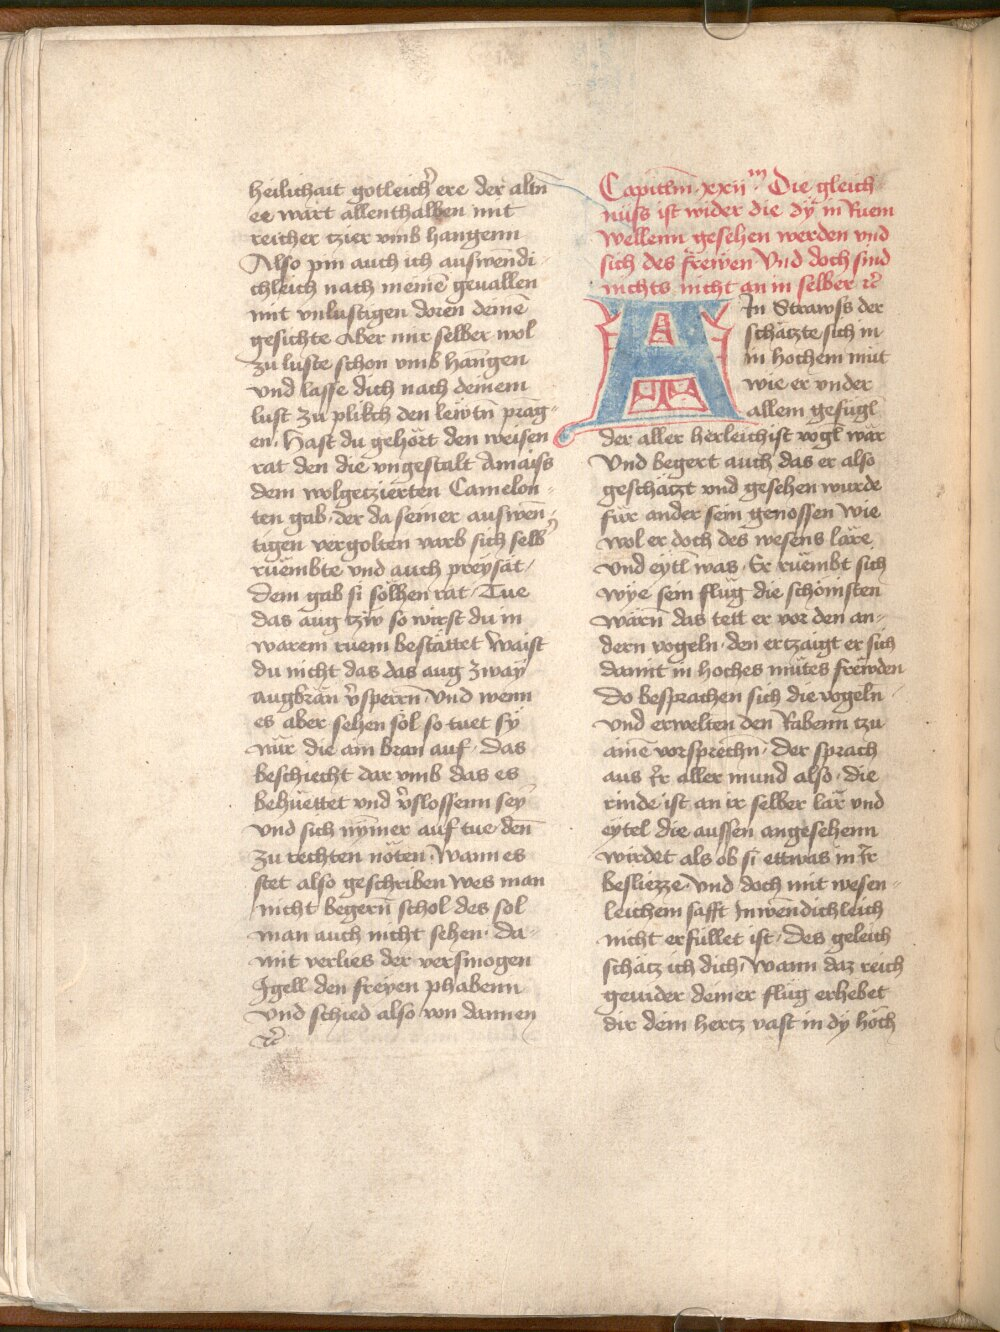 heilichait gotleich̾ ere der altn̄
ee wart allenthalben mit
reicher tzier vmb hangenn
Also pin auch ich auswendi⸗
chleich nach meinē geuallen
mit vnlustigen doren deinē
gesichte Aber mir selber wol
zu luste schon vmb hangen
vnd lasse dich nach deinem
lust zu plikch den lewtn̄ prāg⸗
en. Hast du gehört den weisen
rat den die vngestalt Amaiss
dem wolgetzierten Camelon⸗
ten gab. der da seiner auswen⸗
tigen vergolten varb sich selb̾
ruembte vnd auch preysät/
dem gab si sölhen rat. Tue
das aug tzw so wirst du in
warem ruem bestättet Waist
du nicht das das aug zway
augbrän v̾sperrn̄ Vnd wenn
es aber sehen sol so tuet sy
nür die ain bran auf. das
beschiecht dar vmb das es
behuettet vnd v̾slossenn sey
vnd sich nymer auf tue den̄
zu rechten nöten. Wann es
stet also geschriben wes man
nicht begern̄ schol des sol
man auch nicht sehen. Da⸗
mit verlies der versmogen
Igell den freyen phabenn
vnd schied also von dannen
ꝛc̾
Capitl̄m .xxii ͫ. Die gleich⸗
nüss ist wider die dy in Ruem
wellenn gesehen werden vnd
sich des frewen Vnd doch sind
nichts nicht an in selber ꝛc̾
AIn Strawss der
schätzte sich in
in hochem müt
wie er vnder
allem gefügl
der aller herleichist vogl wär
Vnd begert auch das er also
geschätzt vnd gesehen wurde
für ander sein genossen wie
wol er doch des wesens läre
vnd eytl̄ was. Er rüembt sich
wye sein flüg die schönisten
wärn̄ das tett er vor den an⸗
dern vogeln. den ertzaigt er sich
damit in hoches mütes frewden
Do besprachen sich die vogeln
vnd erwelten den Rabenn tzu
ainē vorsprechn̄. der sprach
aus Ir aller mund also. die
rinde ist an ir selber lär vnd
eytel die aussen angesehenn
wirdet als ob si ettwas in Ir
besliezze. Vnd doch mit wesen⸗
leichem safft Inwendichleich
nicht erfüllet ist. des geleich
schätz ich dich. Wann daz reich
geuider deiner flüg erhebet
dir dein hertz vast in dy höch